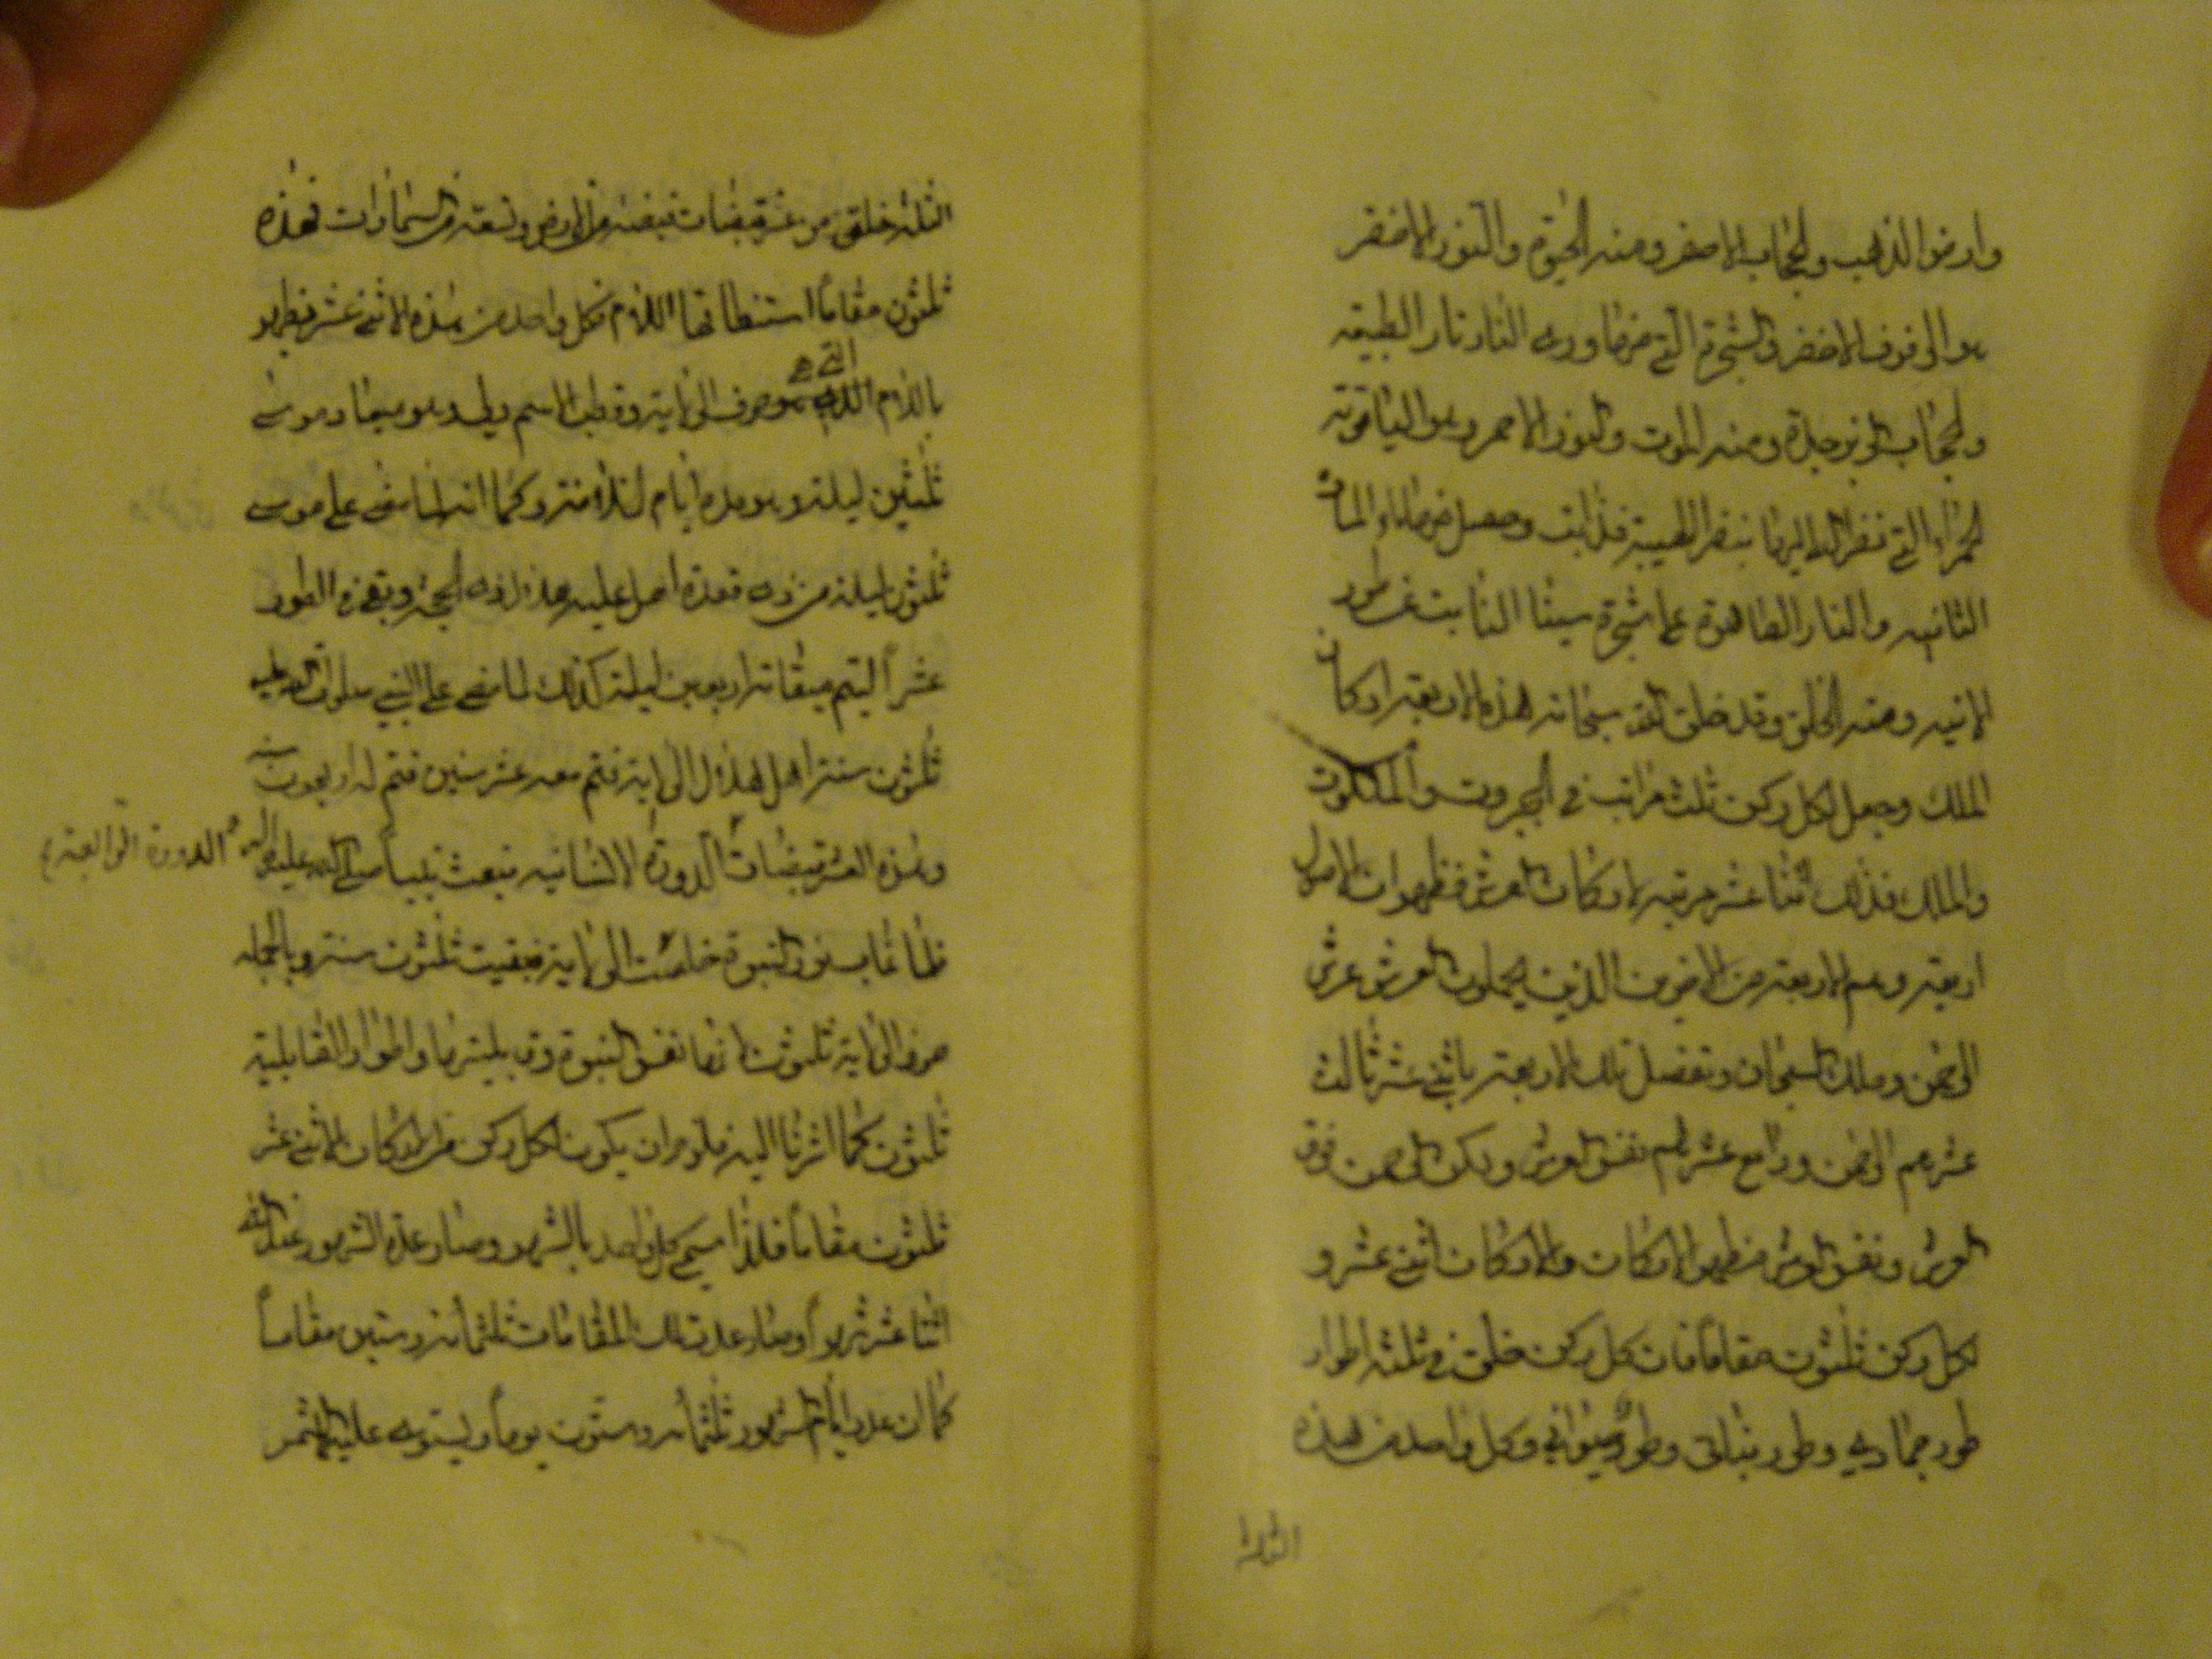 وارض الذهب والحجاب الاصفر ومنه الحيوة والنور الاخضر
هو الرفرف الاخضر والشجرة التي منها ورى النار نار الطبيعة
والحجاب الزبرجدة ومنه الموت والنور الاحمر وهو الياقوتة
الحمراء التي نظر الله اليها بنظر الهيبة فذابت وحصل منها الماء
الثانيه والنار الظاهرة على شجرة سينا النابتة في طور
الانيه ومنه الخلق وقد خلق الله سبحانه هذه الاربعة اركان
الملك وجعل لكل ركن ثلث مراتب في الجبروت والملكوت
والملك فذلك اثنا عشر مرتبه لاركان العرش فظهر ان الاصول
اربعة وهم الاربعة من الاخرين الذين يحملون العرش عرش
الرحمن وملك السبحان وتفصل تلك الاربعة باثني عشر ثالث
عشرهم الرحمن ورابع عشرهم نفس العرش ولكن الرحمن فوق
العرش ونفس العرش مظهر الاركان والاركان اثني عشر و
لكل ركن ثلثون مقاما فان كل ركن خلق في ثلثه اطوار
طور جمادي وطور نباتي وطور حيواني وكل واحد من هذه
الثلثة
الثلثه خلق من عشر قبضات قبضة من الارض وتسعة من السماوات فهذه
ثلثون مقاما استنطاقها اللام فكل واحد من هذه الاثني عشر يظهر
باللام التي هي حرف الولاية وقطب الاسم ولي وهو ميعاد موسى
ثلثين ليلة وهو مدة ايام كما انه لما مضى على موسى
ثلثون ليلة من ذي قعدة اهل عليه هلال ذي الحجة وبقي في الطور
عشرا ليتم ميقاته اربعين ليلة كذلك لما مضى على النبي صلوات الله عليه
ثلثون سنة اهل هلال الولاية فتم معه عشر سنين فتم له اربعون سنة
وهذه العشر قبضات الدورة الانسانيه فبعث نبيا صلى الله عليه واله
الدورة الرابعة
فلما غاب نور النبوة خلصت الولاية فبقيت ثلثون سنة وبالجملة
حرف الولاية ثلثون لانها نفس النبوة وقابليتها واطوار القابلية
ثلثون كما اشرنا اليه فلزم ان يكون لكل ركن من الاركان الاثني عشر
ثلثون مقاما فلذا سمي كل واحد بالشهر وصار عدة الشهور عند الله
اثنا عشر شهرا وصار عدة تلك المقامات ثلثمائة وستين مقاما
كما ان عدد ايام الشهور ثلثمائة وستون يوما ويستوي عليها الشمس